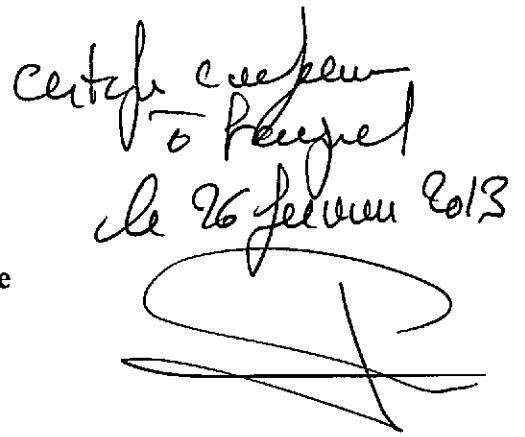 certifié conforme
à l'original
le 26 février 2013
e